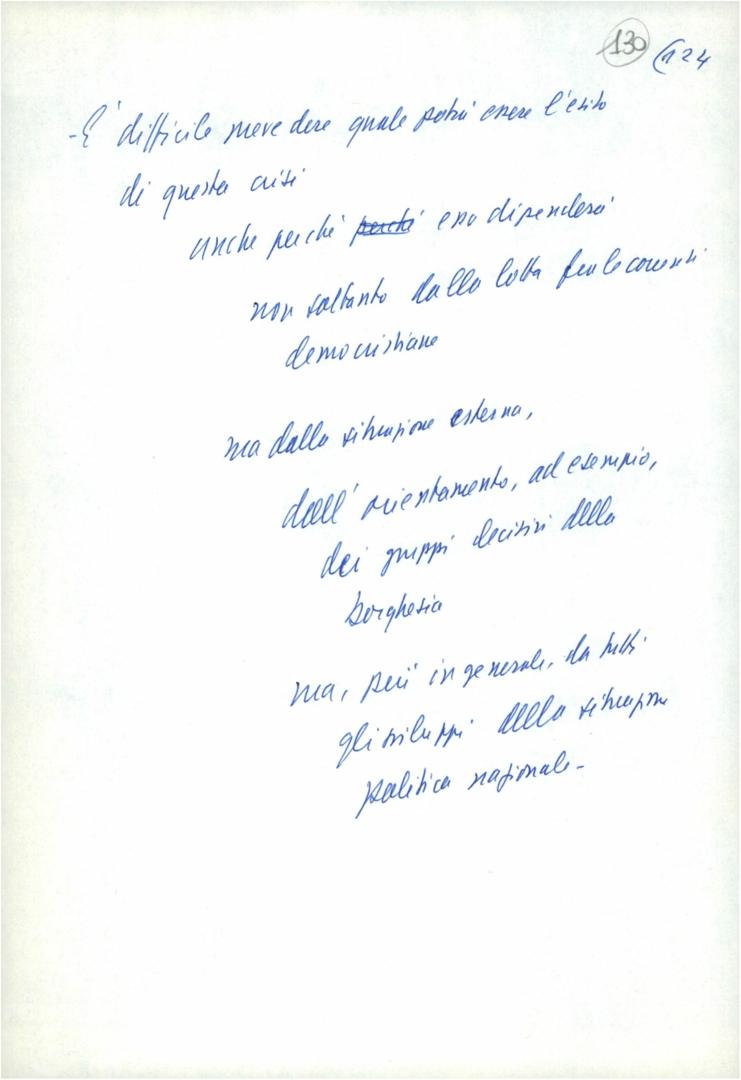 130 (124
- E' difficile prevedere quale potrà essere l'esito
di questa crisi
anche perché perché essa dipenderà
non soltanto dalla lotta fra le correnti
democristiane
ma dalla situazione esterna,
dall'orientamento, ad esempio,
dei gruppi decisivi della
borghesia
ma, più in generale, da tutti
gli sviluppi della situazione
politica nazionale -